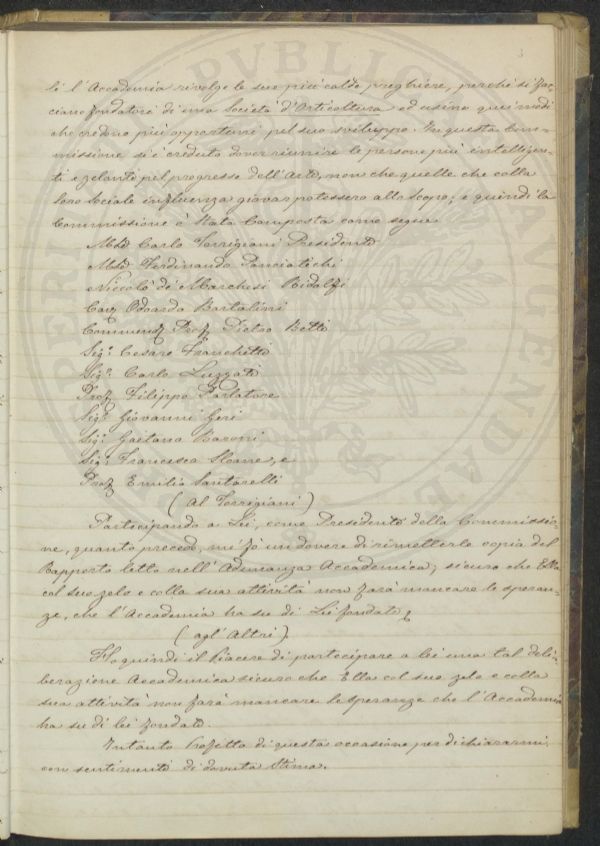 3
li l'Accademia rivolge le sue più calde preghiere, perchè si fac-
ciano fondatori di una Società d'Orticoltura ed usino quei modi
che credono più opportuni pel suo sviluppo. In questa Com-
missione si è creduto dover riunire le persone più intelligen-
ti e zelanti pel progresso dell'Arte, non che quelle che colla
loro Sociale influenza giovar potessero allo Scopo; e quindi la
Commissione è stata Composta come segue
Mse Carlo Torrigiani Presidente
Mse Ferdinando Panciatichi
Niccolò de' Marchesi Ridolfi
Cav Odoardo Bartalini
Commend Prof Pietro Betti
Sigr Cesare Franchetti
Sigr Carlo Luzzati
Prof Filippo Parlatore
Sigr Giovanni Geri
Sigr Gaetano Baroni
Sigr Francesco Sloane, e
Prof Emilio Santarelli
(al Torrigiani)
Partecipando a Lei, come Presidente della Commissio-
ne, quanto precede, mi fo un dovere di rimetterle copia del
Rapporto letto nell'Adunanza Accademica; sicuro che Ella
col suo zelo e colla sua attività non farà mancare le speran-
ze, che l'Accademia ha su di Lei fondate
(agl'Altri)
Ho quindi il piacere di partecipare a lei una tal deli-
berazione Accademica sicuro che Ella col suo zelo e colla
sua attività non farà mancare le speranze che l'Accademia
ha su di lei fondate.
Intanto Profitto di questa occasione per dichiararmi
con sentimenti di dovuta Stima.
PVBLICAE